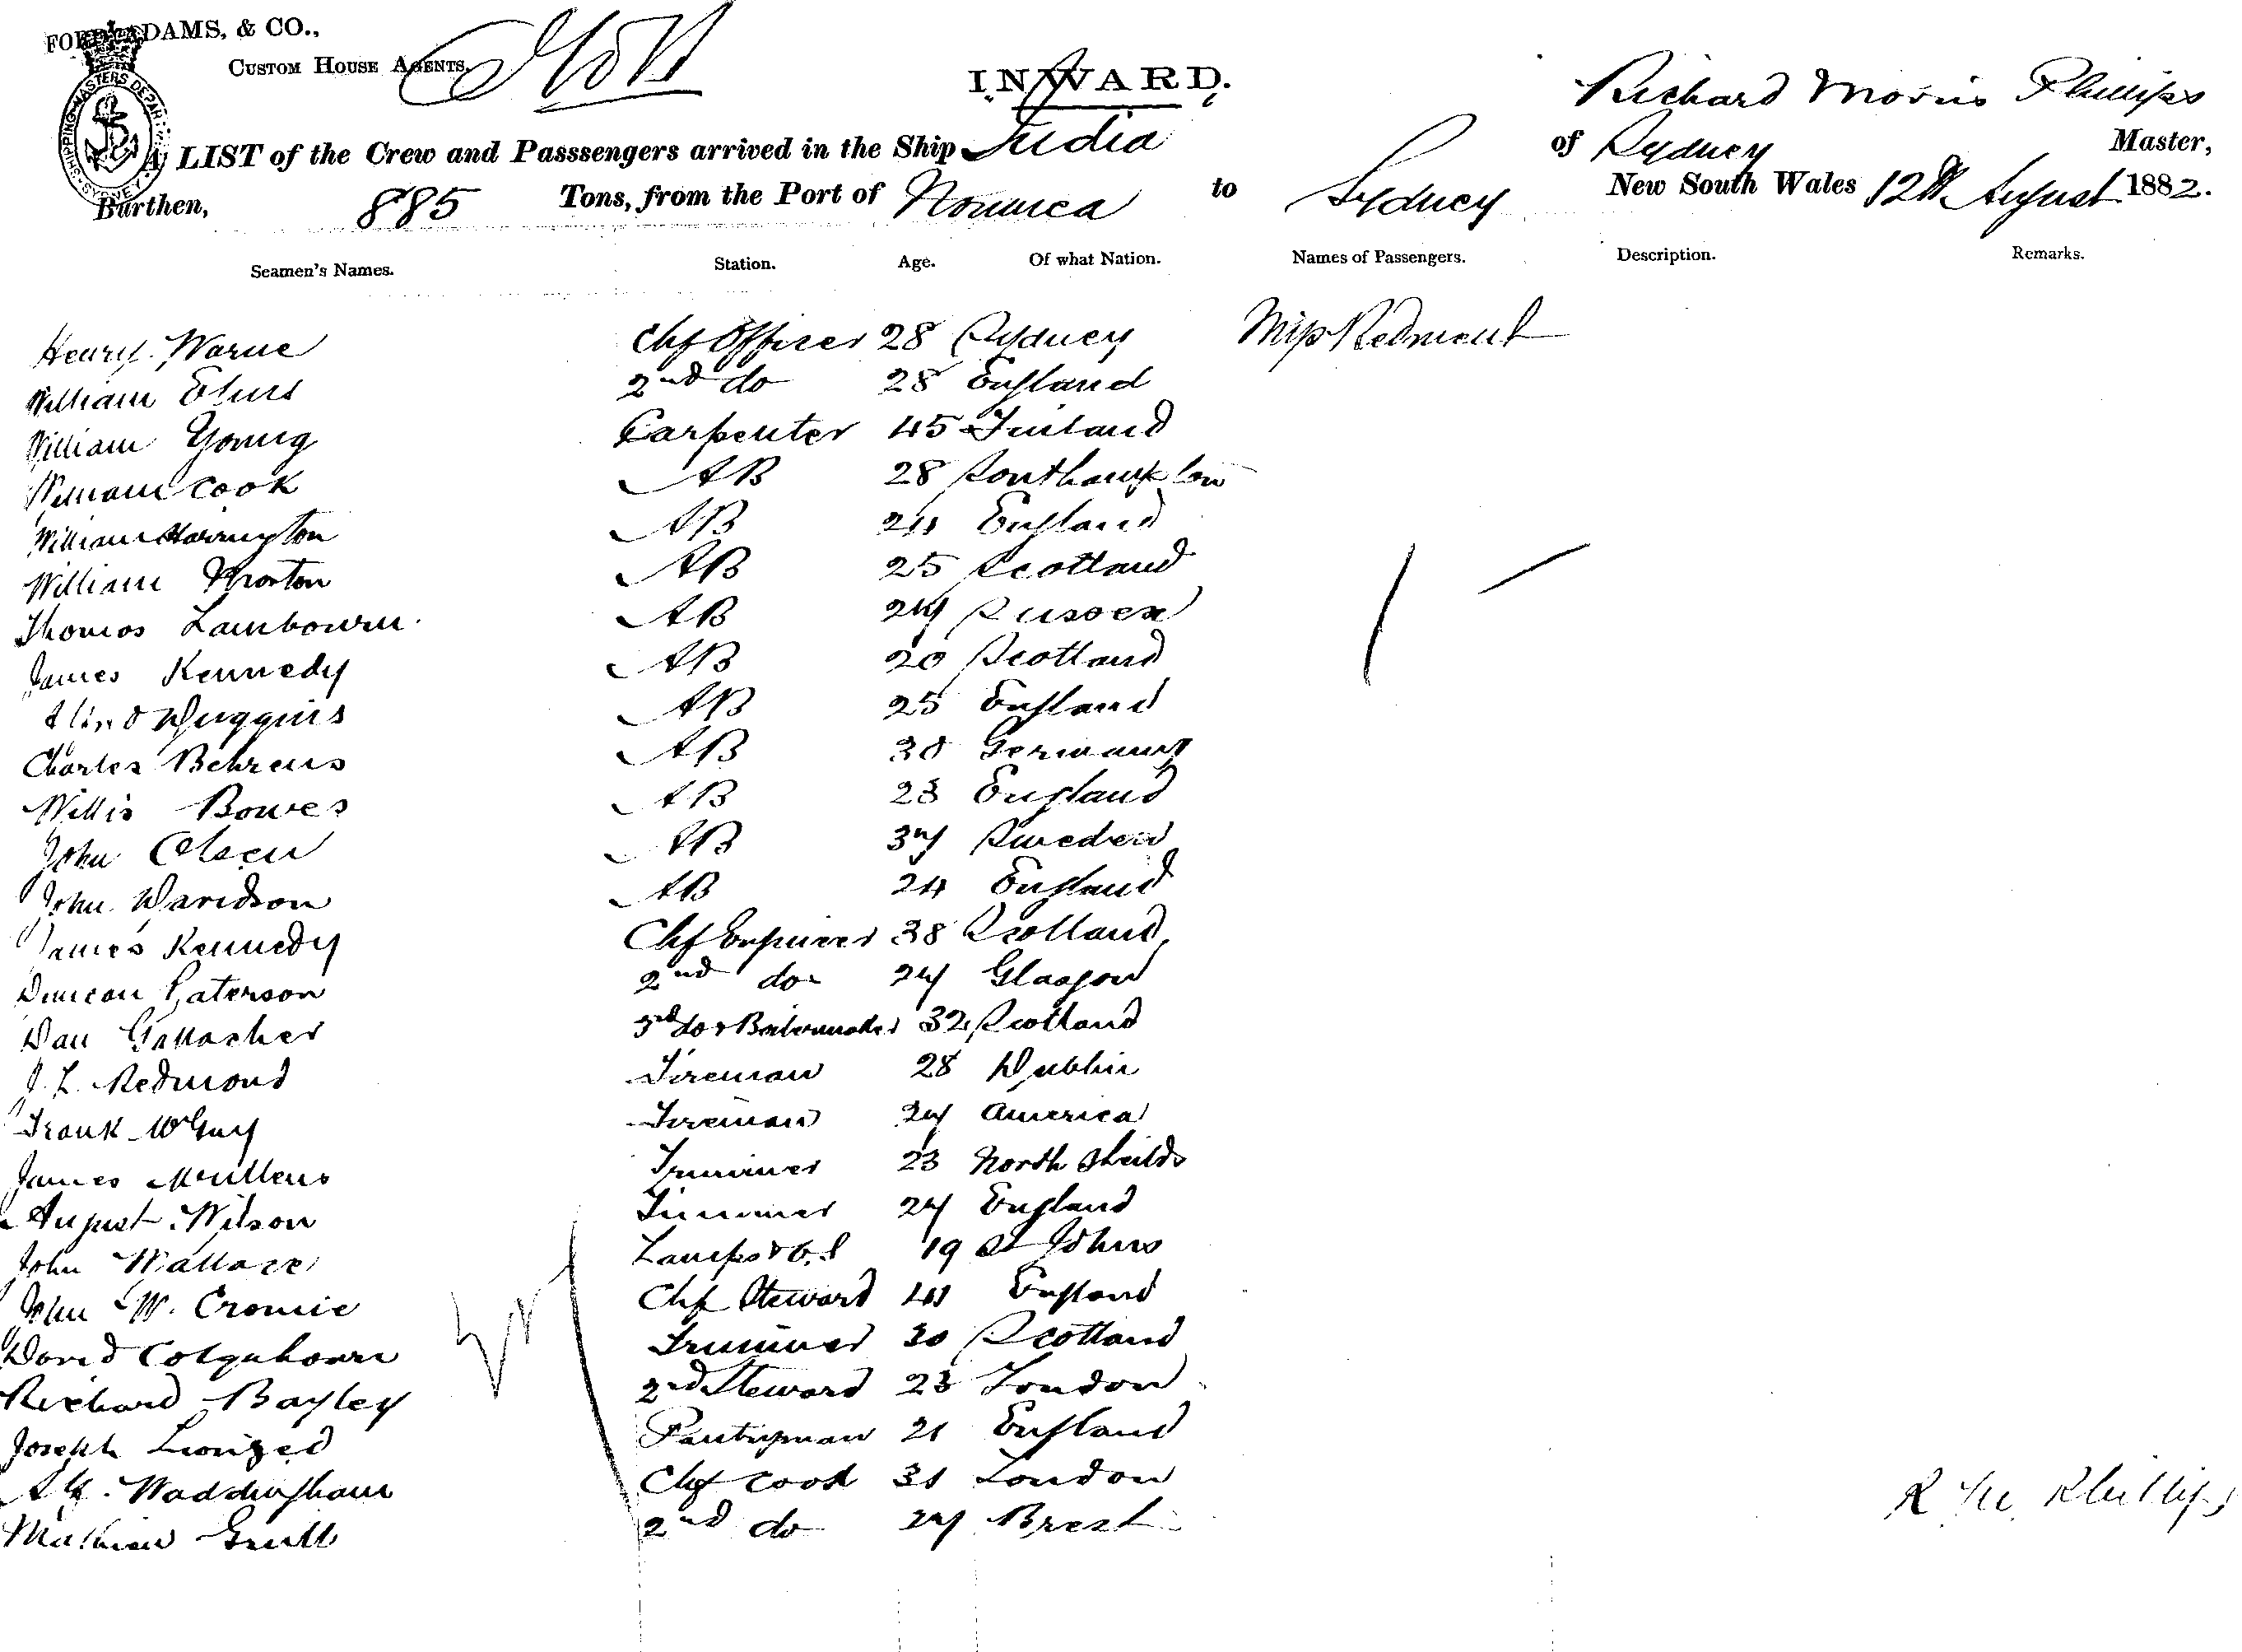 FORD, ADAMS, & CO.,
CUSTOM HOUSE AGENTS.
SHIPPING MASTERS DEPART
SYDNEY
INWARD.
Richard Morris Phillips
A LIST of the Crew and Passsengers arrived in the Ship India of Sydney Master,
Burthen, 885 Tons, from the Port of Noumea to Sydney New South Wales 12th August 1882.
Seamen's Names. Station. Age. Of what Nation. Names of Passengers. Description. Remarks.
Henry Warne Chf Officer 28 Sydney Miss Redment
William 2nd do 28 England
William Young Carpenter 45 Finland
William Cook AB 28 Southampton
William Harrington AB England
William AB 25 Scotland
Thomas Lambourn AB Sussex
James Kennedy AB 20 Scotland
Duggins AB 25 England
Charles Behrens AB 30 Germany
Willis Bowes AB 23 England
John Olsen AB 37 Sweden
John Davidson AB 24 England
James Kennedy Chf Engineer 38 Scotland
Duncan Paterson 2nd do 27 Glasgow
Dan Gallacher 3rd do & Boilermaker 32 Scotland
J. L. Redmond Fireman 28 Dublin
Frank Fireman 27 America
James Mullens Trimmer 23 North Sheilds
August Wilson Trimmer 27 England
John Wallace Lamps & O.S 19 St Johns
John W. Cromie Chf Steward 41 England
David Colquhoun Trimmer 30 Scotland
Richard Bayley 2nd Steward 23 London
Joseph Pantryman 21 England
Waddingham Chf Cook 31 London
2nd do 27 Brest
R M Phillips